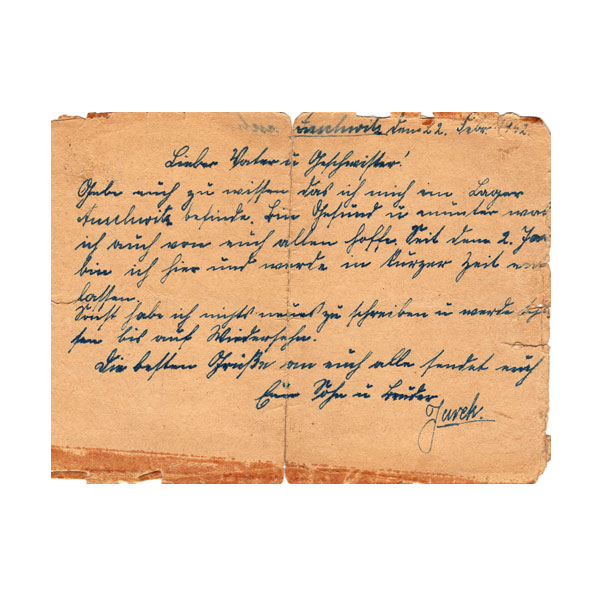 Auschwitz den 22. Febr. 1942.
Lieber Vater u Geschwister!
Gebe euch zu wissen das ich mich im Lager
Auschwitz befinde. Bin Gesund u munter was
ich auch von euch allen hoffe. Seit dem 2. Jan
bin ich hier und werde in kurzer Zeit en
lassen.
Sonst habe ich nichts neues zu schreiben u werde
sen bis auf Wiedersehn.
Die besten Grüße an euch alle sendet euch
Euer Sohn u Bruder
Jurek.